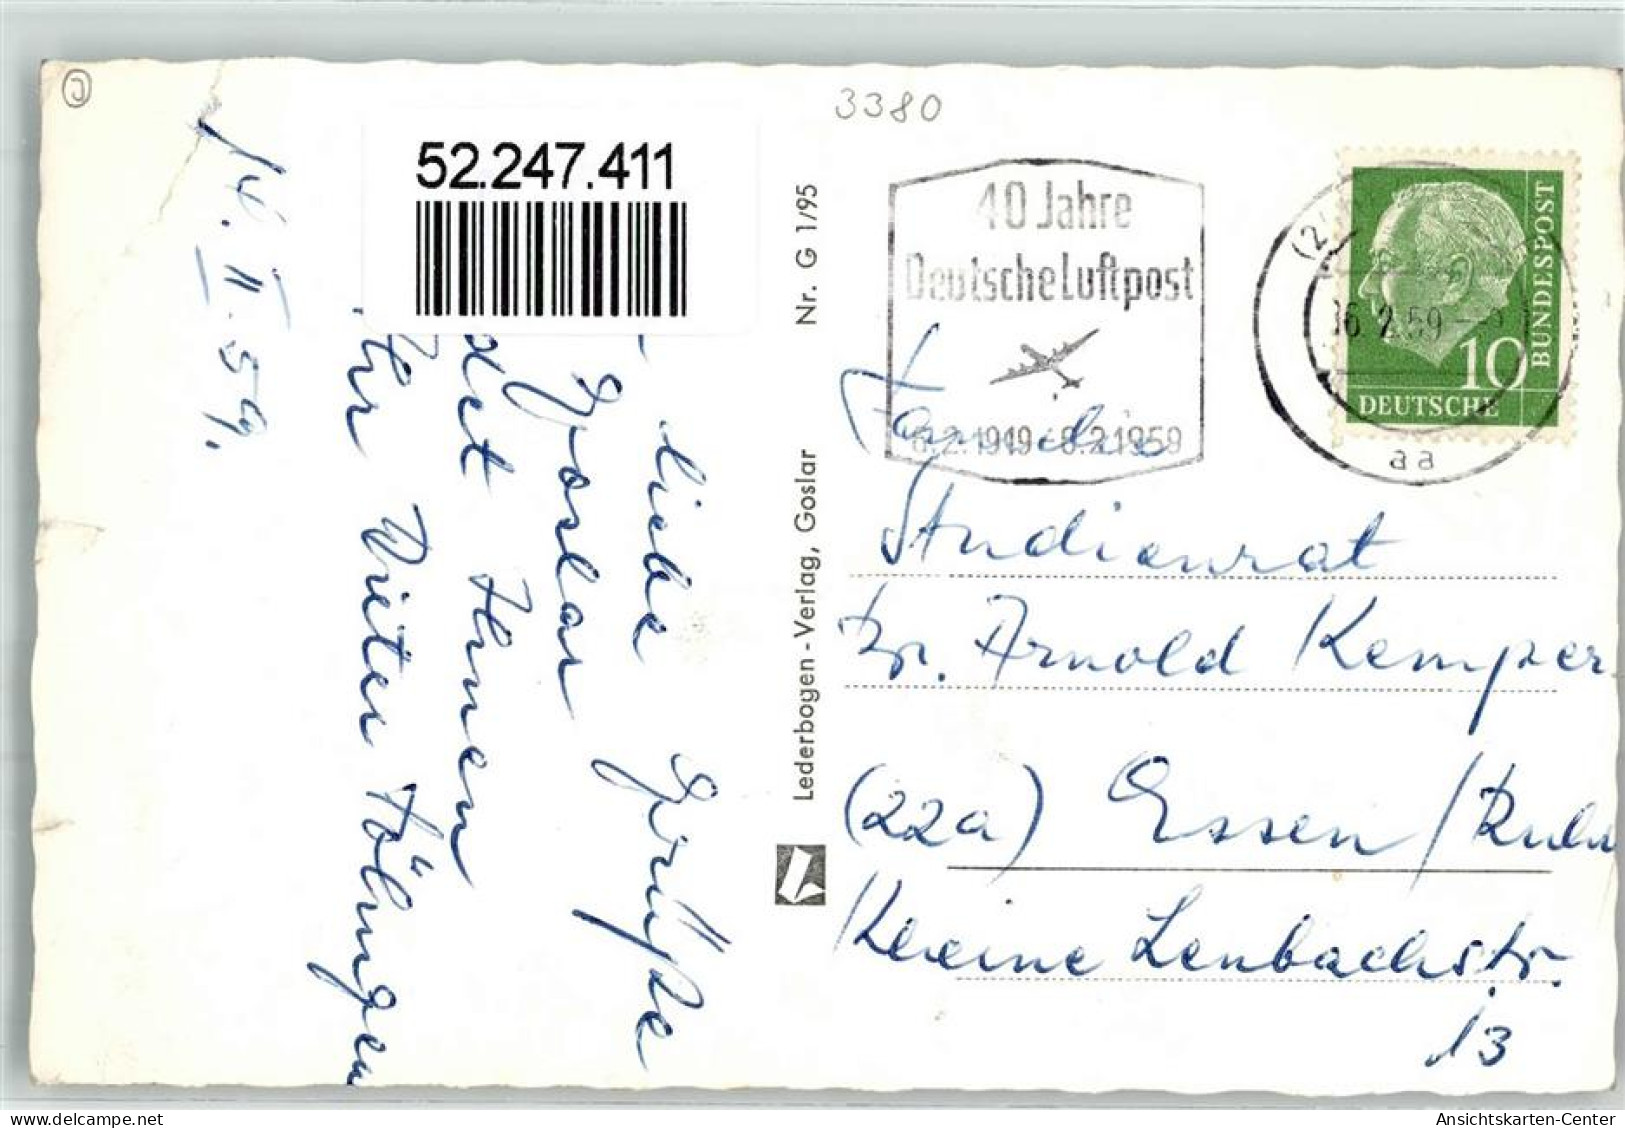 3380
52.247.411
14. II. 59.
liebe Grüße
Goslar
det Ihnen
Ihr Dieter Höhngen
Nr. G 1/95
Lederbogen-Verlag, Goslar
40 Jahre
Deutsche Luftpost
6.2.1919-6.2.1959
16.2.59
aa
DEUTSCHE
BUNDESPOST
10
Familie
Studienrat
Dr. Arnold Kemper
(22a) Essen/Ruhr
Kleine Lenbachstr.
13
Ansichtskarten-Center